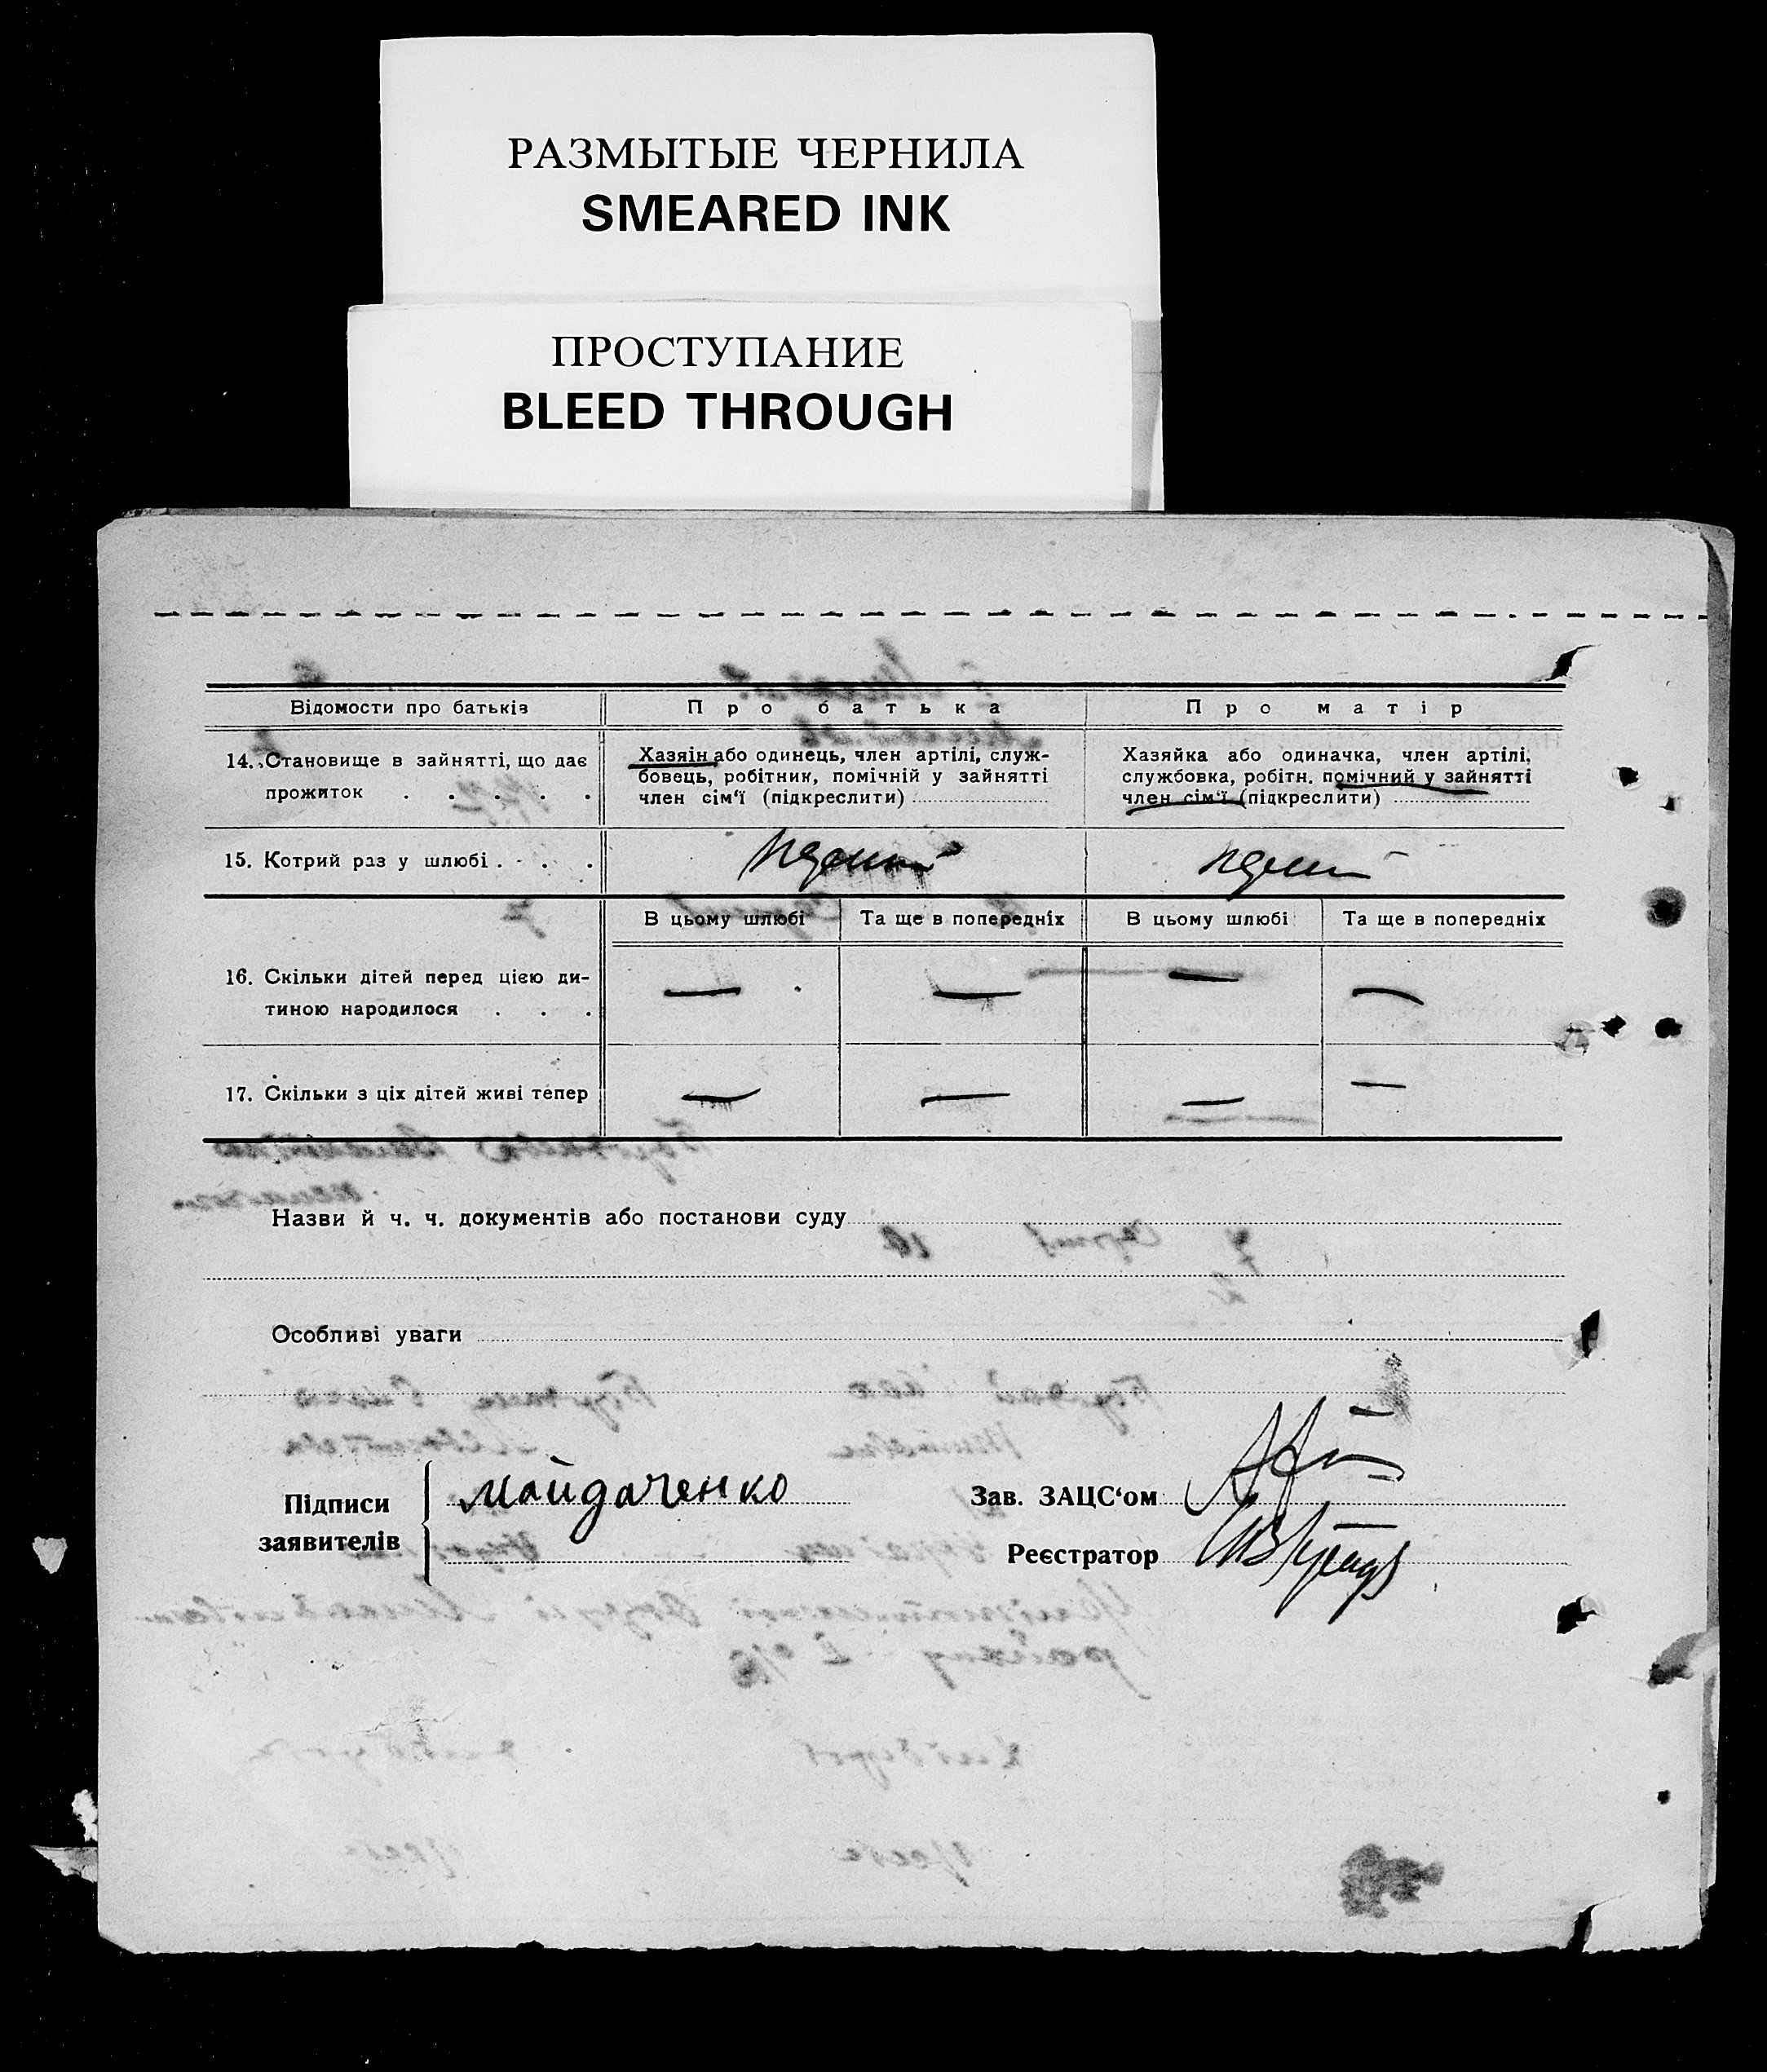 РАЗМЫТЫЕ ЧЕРНИЛА
SMEARED INK
ПРОСТУПАНИЕ
BLEED THROUGH
Відомости про батьків
Про батька
Про матір
14. Становище в зайнятті, що дає
прожиток . . . . .
Хазяін або одинець, член артілі, служ-
бовець, робітник, помічній у зайнятті
член сім'ї (підкреслити)
Хазяйка або одиначка, член артілі,
службовка, робітн. помічний у зайнятті
член сім'ї (підкреслити)
15. Котрий раз у шлюбі . . . .
В цьому шлюбі
Та ще в попередніх
В цьому шлюбі
Та ще в попередніх
16. Скільки дітей перед цією ди-
тиною народилося . . .
— — — —
17. Скільки з ціх дітей живі тепер
— — — —
Назви й ч. ч. документів або постанови суду
Особливі уваги
Підписи
заявителів
Майдаченко
Зав. ЗАЦС'ом
Реєстратор